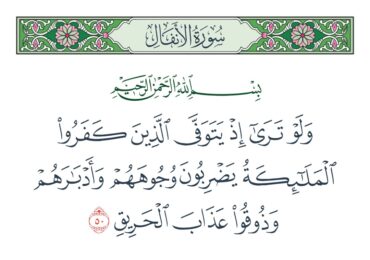 سُورَةُ الأَنفَالِ
بِسْمِ اللَّهِ الرَّحْمَٰنِ الرَّحِيمِ
وَلَوْ تَرَىٰٓ إِذْ يَتَوَفَّى الَّذِينَ كَفَرُوا۟
الْمَلَـٰٓئِكَةُ يَضْرِبُونَ وُجُوهَهُمْ وَأَدْبَـٰرَهُمْ
وَذُوقُوا۟ عَذَابَ الْحَرِيقِ ٥٠